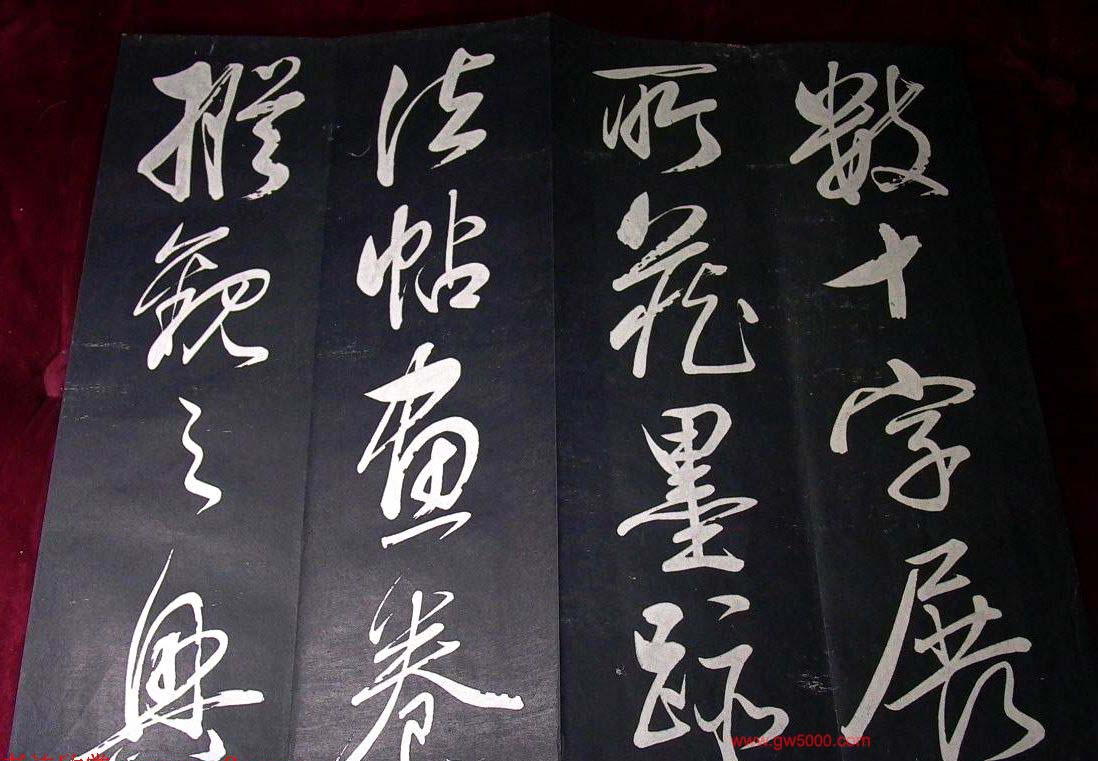 數十字展
所藏墨跡
法帖畫卷
縱觀之興
www.gw5000.com